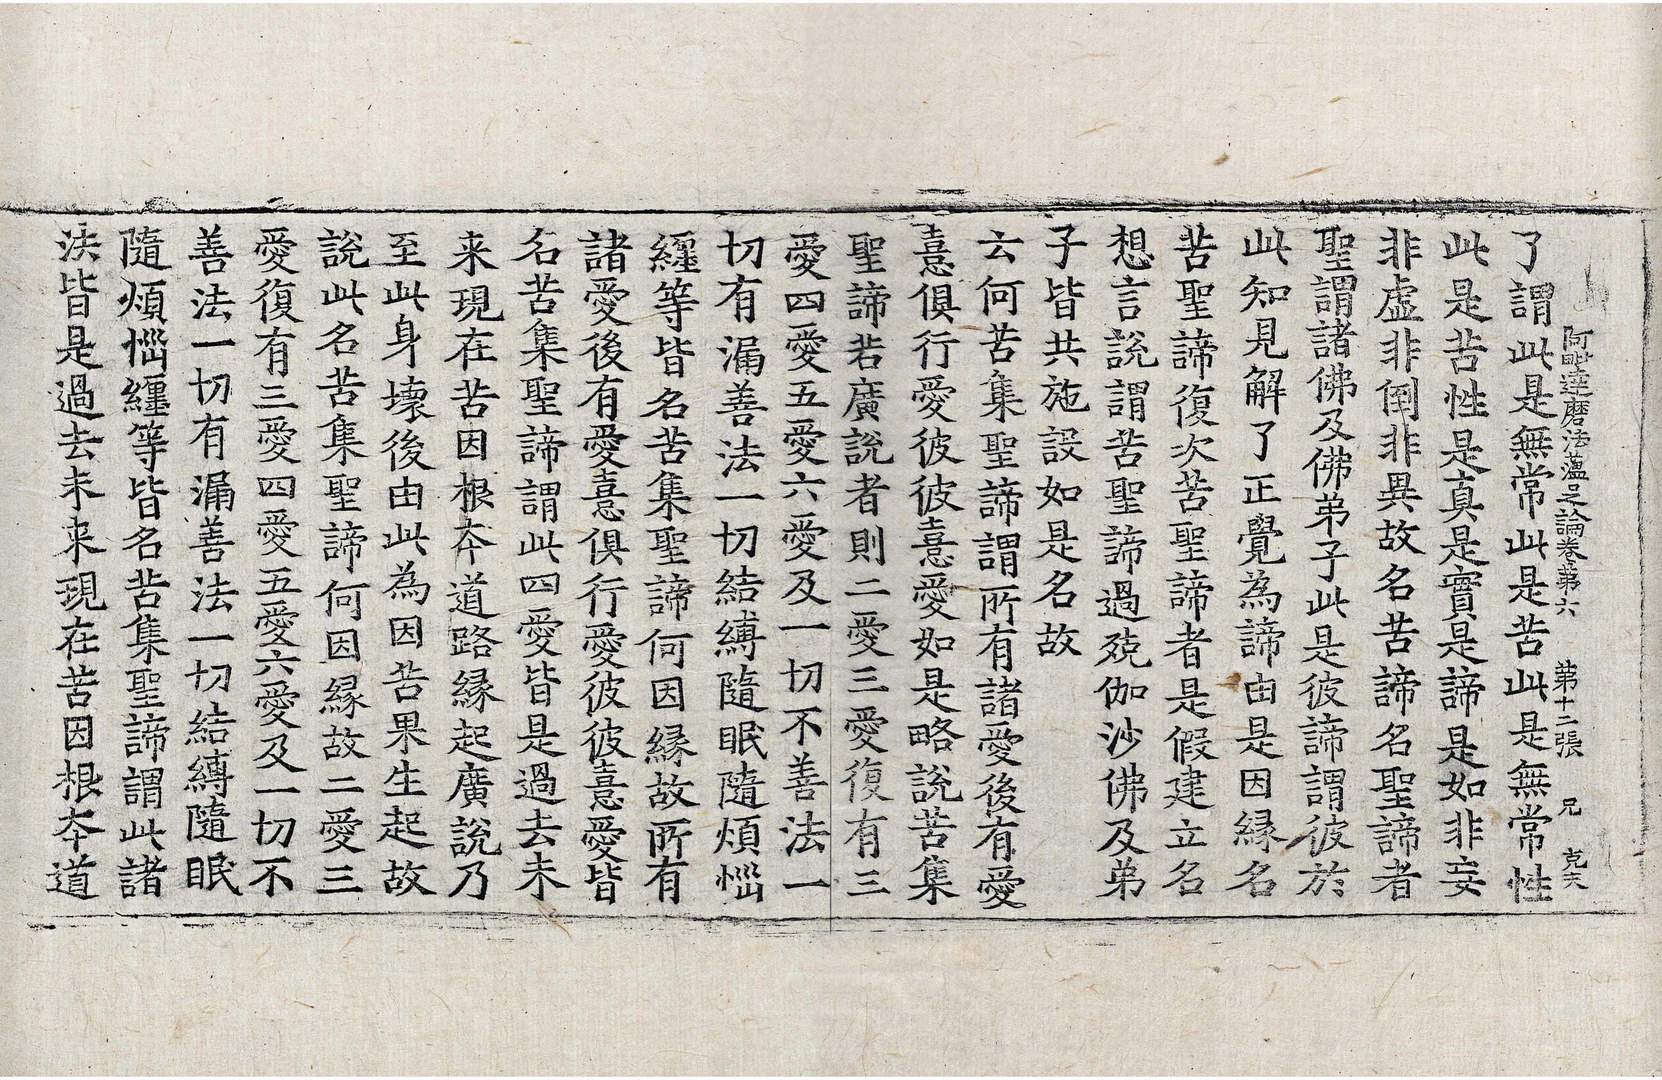 阿毗達磨法蘊足論卷第六 第十二張 兄 克夫
了謂此是無常此是苦此是無常性
此是苦性是真是實是諦是如非妄
非虛非倒非異故名苦諦名聖諦者
聖謂諸佛及佛弟子此是彼諦謂彼於
此知見解了正覺為諦由是因緣名
苦聖諦復次苦聖諦者是假建立名
想言說謂苦聖諦過殑伽沙佛及弟
子皆共施設如是名故
云何苦集聖諦謂所有諸愛後有愛
憙俱行愛彼彼憙愛如是略說苦集
聖諦若廣說者則二愛三愛復有三
愛四愛五愛六愛及一切不善法一
切有漏善法一切結縛隨眠隨煩惱
纏等皆名苦集聖諦何因緣故所有
諸愛後有愛憙俱行愛彼彼憙愛皆
名苦集聖諦謂此四愛皆是過去未
来現在苦因根本道路緣起廣說乃
至此身壞後由此為因苦果生起故
說此名苦集聖諦何因緣故二愛三
愛復有三愛四愛五愛六愛及一切不
善法一切有漏善法一切結縛隨眠
隨煩惱纏等皆名苦集聖諦謂此諸
法皆是過去未来現在苦因根本道